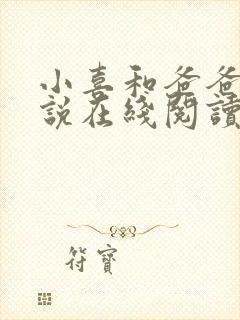 小喜和爸爸
說在綫閱讀
符寶